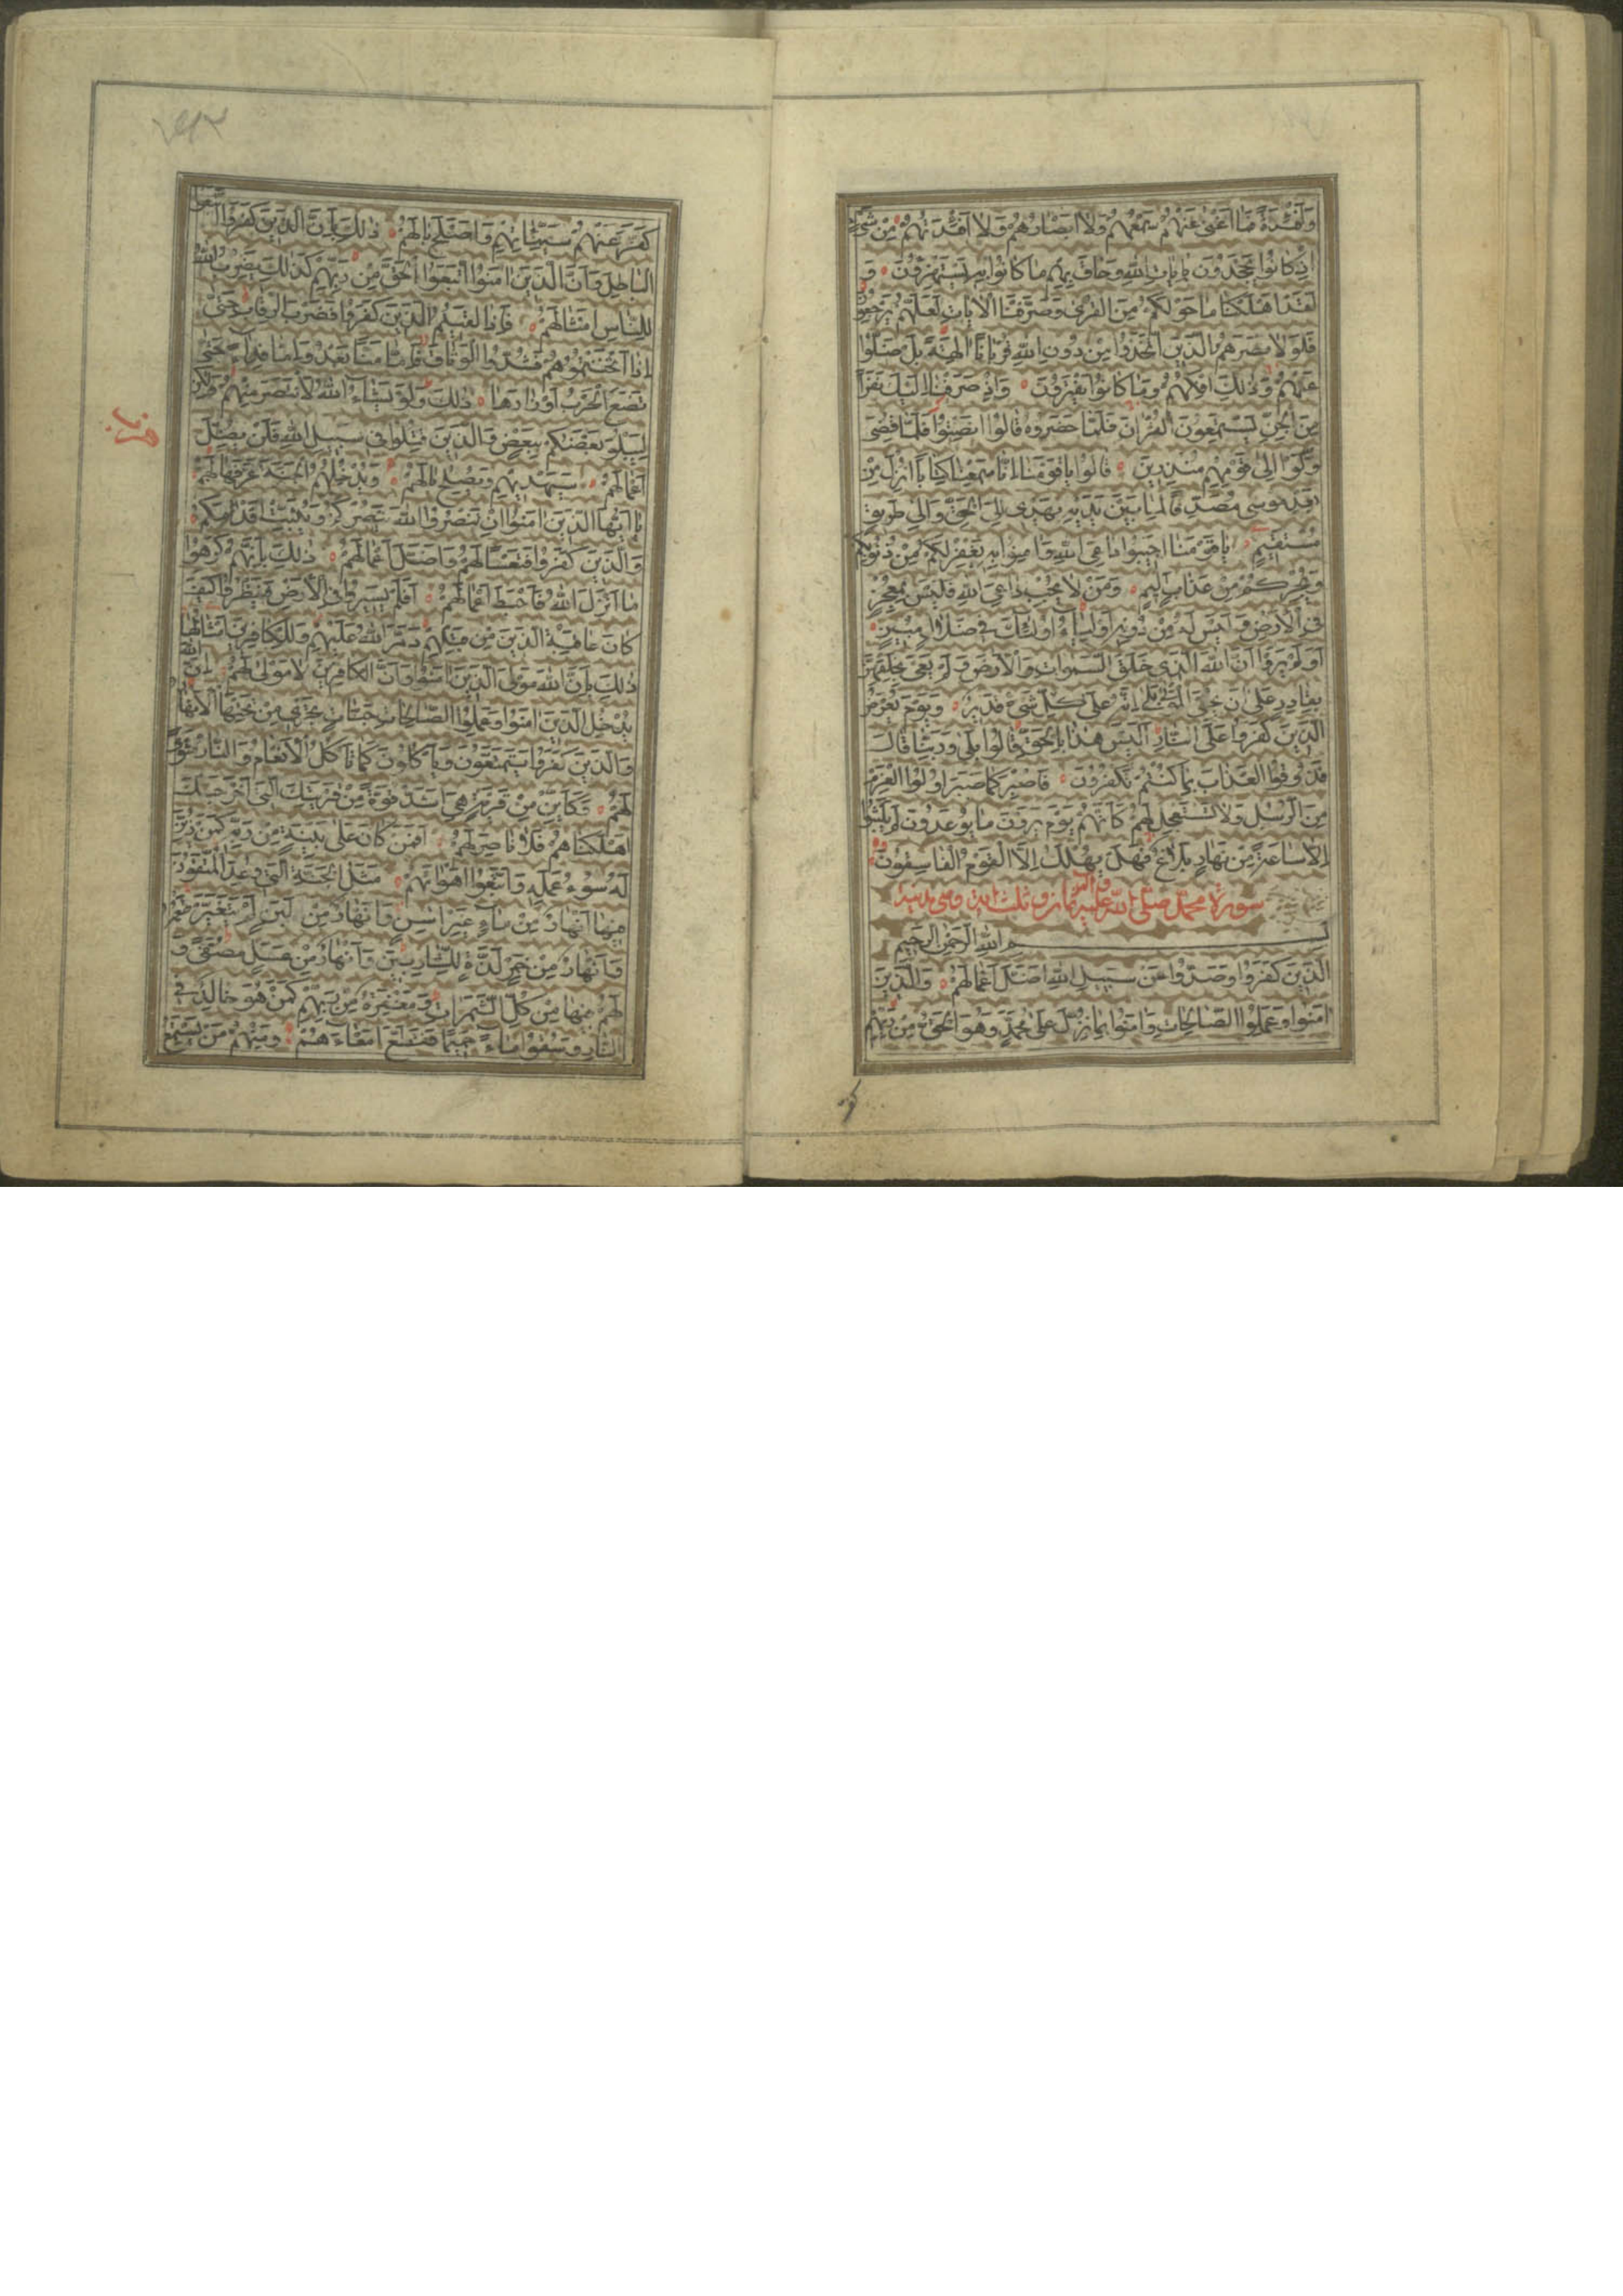 وَاَفْئِدَةً فَمَا اَغْنٰى عَنْهُمْ سَمْعُهُمْ وَلَا اَبْصَارُهُمْ وَلَا اَفْئِدَتُهُمْ مِنْ شَىْءٍ
اِذْ كَانُوا يَجْحَدُونَ بِاٰيَاتِ اللّٰهِ وَحَاقَ بِهِمْ مَا كَانُوا بِهِ يَسْتَهْزِؤُنَ وَ
لَقَدْ اَهْلَكْنَا مَا حَوْلَكُمْ مِنَ الْقُرٰى وَصَرَّفْنَا الْاٰيَاتِ لَعَلَّهُمْ يَرْجِعُونَ
فَلَوْلَا نَصَرَهُمُ الَّذِينَ اتَّخَذُوا مِنْ دُونِ اللّٰهِ قُرْبَانًا اٰلِهَةً بَلْ ضَلُّوا
عَنْهُمْ وَذٰلِكَ اِفْكُهُمْ وَمَا كَانُوا يَفْتَرُونَ وَاِذْ صَرَفْنَا اِلَيْكَ نَفَرًا
مِنَ الْجِنِّ يَسْتَمِعُونَ الْقُرْاٰنَ فَلَمَّا حَضَرُوهُ قَالُوا اَنْصِتُوا فَلَمَّا قُضِىَ
وَلَّوْا اِلٰى قَوْمِهِمْ مُنْذِرِينَ قَالُوا يَا قَوْمَنَا اِنَّا سَمِعْنَا كِتَابًا اُنْزِلَ مِنْ
بَعْدِ مُوسٰى مُصَدِّقًا لِمَا بَيْنَ يَدَيْهِ يَهْدِى اِلَى الْحَقِّ وَاِلٰى طَرِيقٍ
مُسْتَقِيمٍ يَا قَوْمَنَا اَجِيبُوا دَاعِىَ اللّٰهِ وَاٰمِنُوا بِهِ يَغْفِرْ لَكُمْ مِنْ ذُنُوبِكُمْ
وَيُجِرْكُمْ مِنْ عَذَابٍ اَلِيمٍ وَمَنْ لَا يُجِبْ دَاعِىَ اللّٰهِ فَلَيْسَ بِمُعْجِزٍ
فِى الْاَرْضِ وَلَيْسَ لَهُ مِنْ دُونِهِ اَوْلِيَاءُ اُولٰئِكَ فِى ضَلَالٍ مُبِينٍ
اَوَلَمْ يَرَوْا اَنَّ اللّٰهَ الَّذِى خَلَقَ السَّمٰوَاتِ وَالْاَرْضَ وَلَمْ يَعْىَ بِخَلْقِهِنَّ
بِقَادِرٍ عَلٰى اَنْ يُحْيِىَ الْمَوْتٰى بَلٰى اِنَّهُ عَلٰى كُلِّ شَىْءٍ قَدِيرٌ وَيَوْمَ يُعْرَضُ
الَّذِينَ كَفَرُوا عَلَى النَّارِ اَلَيْسَ هٰذَا بِالْحَقِّ قَالُوا بَلٰى وَرَبِّنَا قَالَ
فَذُوقُوا الْعَذَابَ بِمَا كُنْتُمْ تَكْفُرُونَ فَاصْبِرْ كَمَا صَبَرَ اُولُوا الْعَزْمِ
مِنَ الرُّسُلِ وَلَا تَسْتَعْجِلْ لَهُمْ كَاَنَّهُمْ يَوْمَ يَرَوْنَ مَا يُوعَدُونَ لَمْ يَلْبَثُوا
اِلَّا سَاعَةً مِنْ نَهَارٍ بَلَاغٌ فَهَلْ يُهْلَكُ اِلَّا الْقَوْمُ الْفَاسِقُونَ
سورة محمد صلى الله عليه واله ثمان و ثلث اية وهى مدنية
بسم اللّٰهِ الرَّحْمٰنِ الرَّحِيمِ
الَّذِينَ كَفَرُوا وَصَدُّوا عَنْ سَبِيلِ اللّٰهِ اَضَلَّ اَعْمَالَهُمْ وَالَّذِينَ
اٰمَنُوا وَعَمِلُوا الصَّالِحَاتِ وَاٰمَنُوا بِمَا نُزِّلَ عَلٰى مُحَمَّدٍ وَهُوَ الْحَقُّ مِنْ رَبِّهِمْ
كفر
كَفَّرَ عَنْهُمْ سَيِّئَاتِهِمْ وَاَصْلَحَ بَالَهُمْ ذٰلِكَ بِاَنَّ الَّذِينَ كَفَرُوا اتَّبَعُوا
الْبَاطِلَ وَاَنَّ الَّذِينَ اٰمَنُوا اتَّبَعُوا الْحَقَّ مِنْ رَبِّهِمْ كَذٰلِكَ يَضْرِبُ اللّٰهُ
لِلنَّاسِ اَمْثَالَهُمْ فَاِذَا لَقِيتُمُ الَّذِينَ كَفَرُوا فَضَرْبَ الرِّقَابِ حَتّٰى
اِذَا اَثْخَنْتُمُوهُمْ فَشُدُّوا الْوَثَاقَ فَاِمَّا مَنًّا بَعْدُ وَاِمَّا فِدَاءً حَتّٰى
تَضَعَ الْحَرْبُ اَوْزَارَهَا ذٰلِكَ وَلَوْ يَشَاءُ اللّٰهُ لَانْتَصَرَ مِنْهُمْ وَلٰكِنْ
لِيَبْلُوَ بَعْضَكُمْ بِبَعْضٍ وَالَّذِينَ قُتِلُوا فِى سَبِيلِ اللّٰهِ فَلَنْ يُضِلَّ
اَعْمَالَهُمْ سَيَهْدِيهِمْ وَيُصْلِحُ بَالَهُمْ وَيُدْخِلُهُمُ الْجَنَّةَ عَرَّفَهَا لَهُمْ
يَا اَيُّهَا الَّذِينَ اٰمَنُوا اِنْ تَنْصُرُوا اللّٰهَ يَنْصُرْكُمْ وَيُثَبِّتْ اَقْدَامَكُمْ
وَالَّذِينَ كَفَرُوا فَتَعْسًا لَهُمْ وَاَضَلَّ اَعْمَالَهُمْ ذٰلِكَ بِاَنَّهُمْ كَرِهُوا
مَا اَنْزَلَ اللّٰهُ فَاَحْبَطَ اَعْمَالَهُمْ اَفَلَمْ يَسِيرُوا فِى الْاَرْضِ فَيَنْظُرُوا كَيْفَ
كَانَ عَاقِبَةُ الَّذِينَ مِنْ قَبْلِهِمْ دَمَّرَ اللّٰهُ عَلَيْهِمْ وَلِلْكَافِرِينَ اَمْثَالُهَا
ذٰلِكَ بِاَنَّ اللّٰهَ مَوْلَى الَّذِينَ اٰمَنُوا وَاَنَّ الْكَافِرِينَ لَا مَوْلٰى لَهُمْ اِنَّ اللّٰهَ
يُدْخِلُ الَّذِينَ اٰمَنُوا وَعَمِلُوا الصَّالِحَاتِ جَنَّاتٍ تَجْرِى مِنْ تَحْتِهَا الْاَنْهَارُ
وَالَّذِينَ كَفَرُوا يَتَمَتَّعُونَ وَيَاْكُلُونَ كَمَا تَاْكُلُ الْاَنْعَامُ وَالنَّارُ مَثْوًى
لَهُمْ وَكَاَيِّنْ مِنْ قَرْيَةٍ هِىَ اَشَدُّ قُوَّةً مِنْ قَرْيَتِكَ الَّتِى اَخْرَجَتْكَ
اَهْلَكْنَاهُمْ فَلَا نَاصِرَ لَهُمْ اَفَمَنْ كَانَ عَلٰى بَيِّنَةٍ مِنْ رَبِّهِ كَمَنْ زُيِّنَ
لَهُ سُوءُ عَمَلِهِ وَاتَّبَعُوا اَهْوَاءَهُمْ مَثَلُ الْجَنَّةِ الَّتِى وُعِدَ الْمُتَّقُونَ
فِيهَا اَنْهَارٌ مِنْ مَاءٍ غَيْرِ اٰسِنٍ وَاَنْهَارٌ مِنْ لَبَنٍ لَمْ يَتَغَيَّرْ طَعْمُهُ
وَاَنْهَارٌ مِنْ خَمْرٍ لَذَّةٍ لِلشَّارِبِينَ وَاَنْهَارٌ مِنْ عَسَلٍ مُصَفًّى وَ
لَهُمْ فِيهَا مِنْ كُلِّ الثَّمَرَاتِ وَمَغْفِرَةٌ مِنْ رَبِّهِمْ كَمَنْ هُوَ خَالِدٌ فِى
النَّارِ وَسُقُوا مَاءً حَمِيمًا فَقَطَّعَ اَمْعَاءَهُمْ وَمِنْهُمْ مَنْ يَسْتَمِعُ
حزب